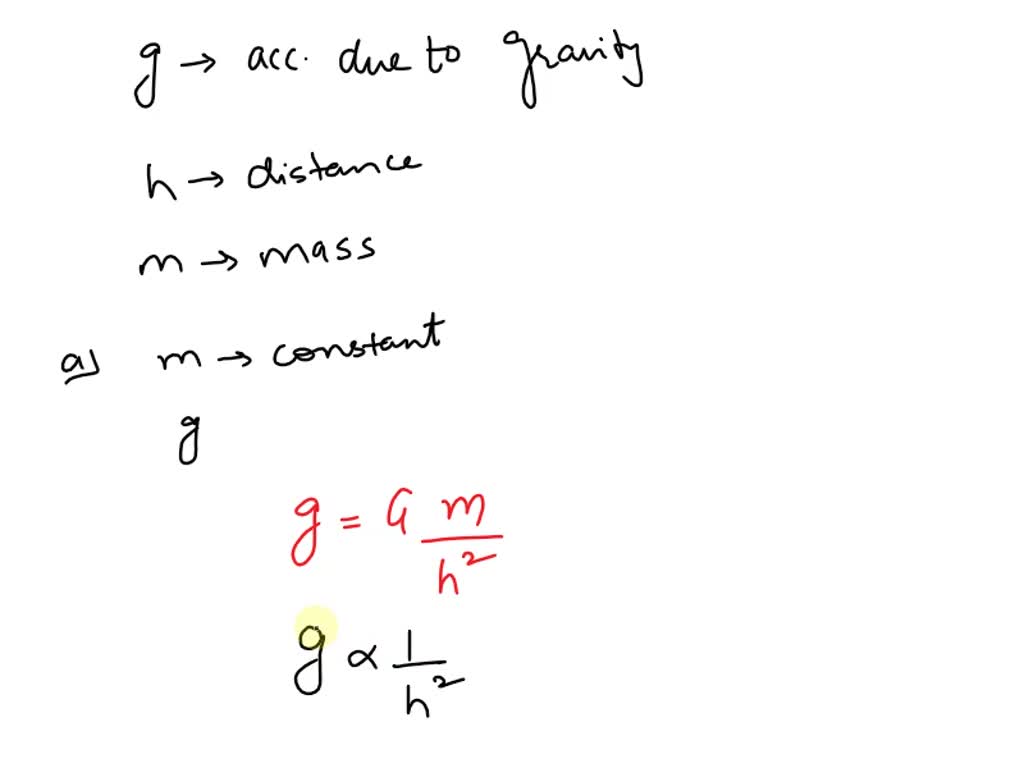 g → acc. due to gravity
h → distance
m → mass
a) m → constant
g
g = G m/h²
g ∝ 1/h²